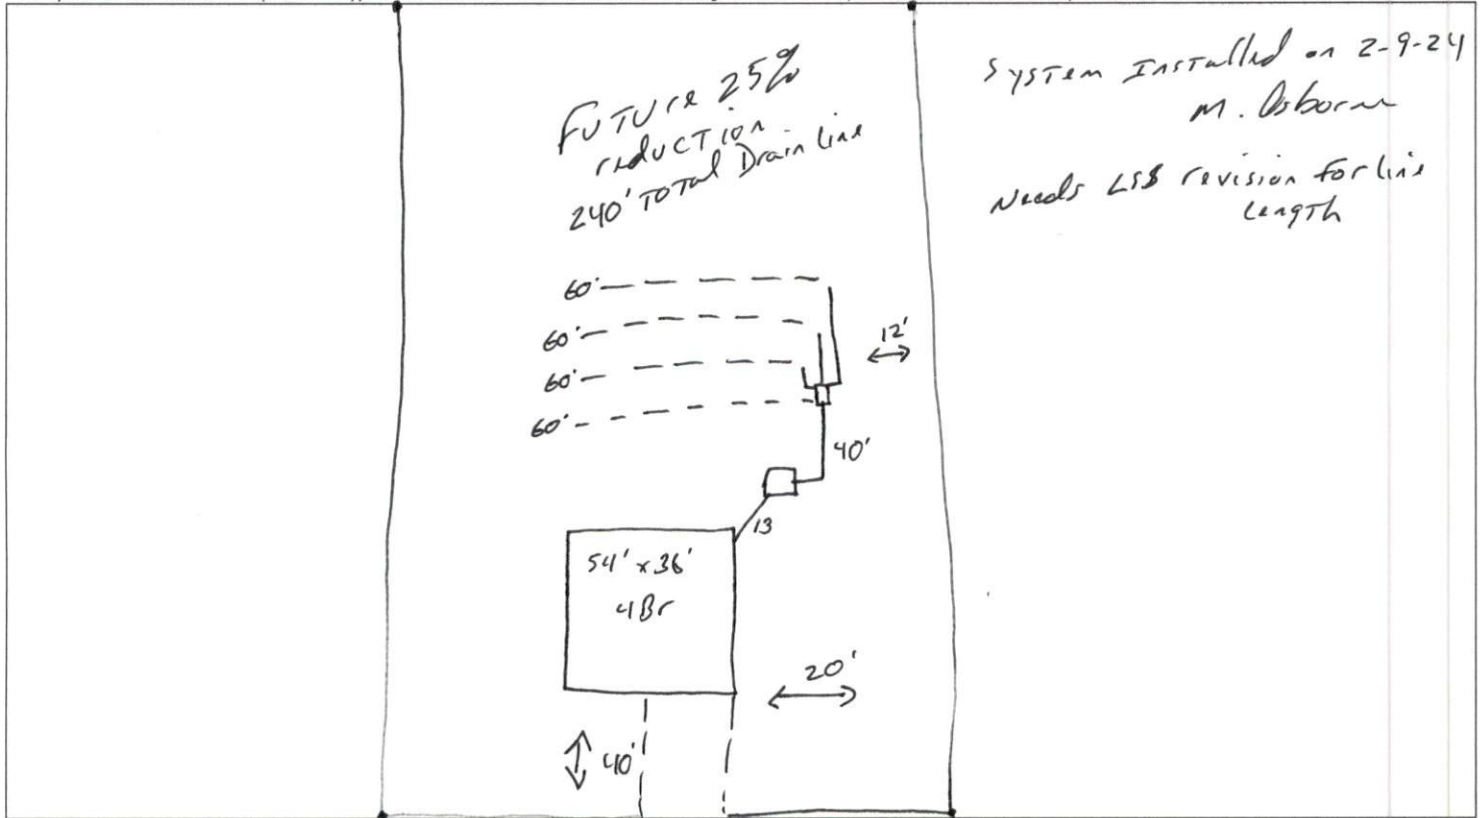 Future 25%
reduction
240' Total Drain line
System Installed on 2-9-24
M. Osborne
Needs LSS revision for line
Length
60'
60'
60'
60'
12'
40'
13
54' x 36'
4Br
20'
40'